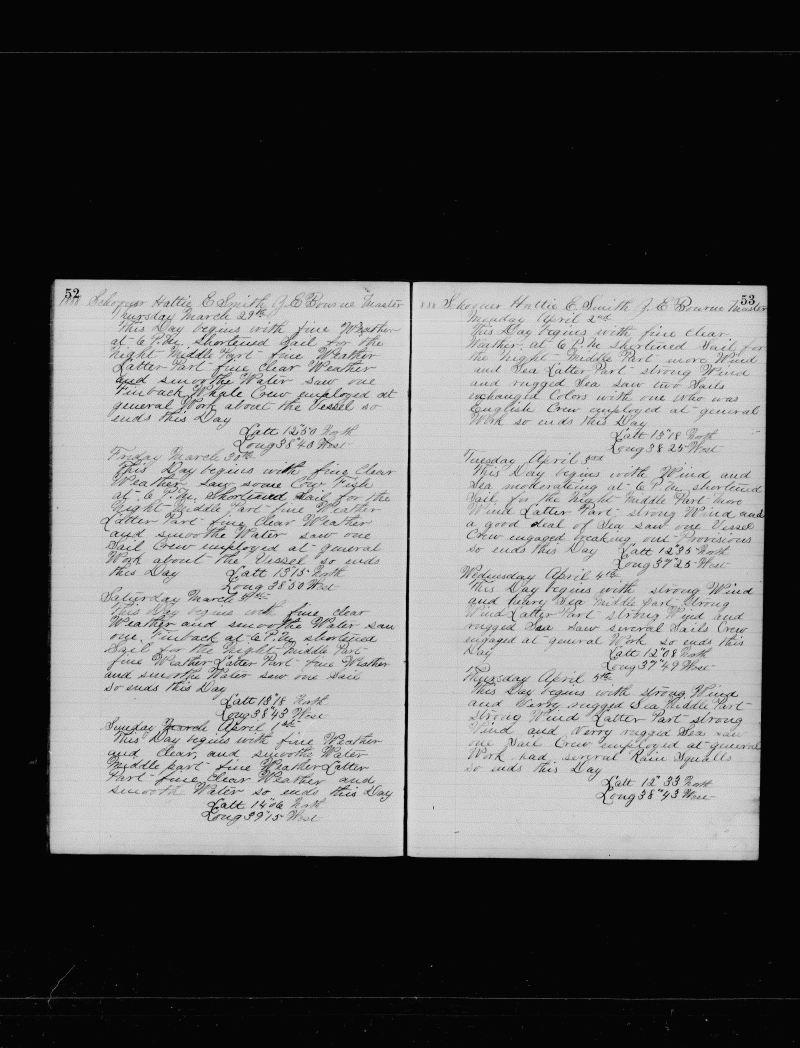 52
1888 Schooner Hattie E Smith J. E Bourne Master
Thursday March 29th
This Day begins with fine Weather
at 6 P.M. Shortened Sail for the
Night Middle Part fine Weather
Latter Part fine clear Weather
and smoothe Water saw one
Finback Whale Crew employed at
general Work about the Vessel so
ends this Day
Latt 12"50 North
Long 38"40 West
Friday March 30th
This Day begins with fine Clear
Weather saw some Cow Fish
at 6 P.M. Shortened Sail for the
Night Middle Part fine Weather
Latter Part fine Clear Weather
and smoothe Water saw one
Sail Crew employed at general
Work about the Vessel so ends
this Day Latt 13"15 North
Long 38"50 West
Saturday March
This Day begins with fine clear
Weather and smoothe Water saw
one Finback at 6 P.M. shortened
Sail for the Night Middle Part
fine Weather Latter Part fine Weather
and smoothe Water saw one Sail
so ends this Day
Latt 13"18 North
Long 38"43 West
Sunday March April 1st
This Day begins with fine Weather
and Clear and smoothe Water
Middle Part fine Weather Latter
Part fine Clear Weather and
smooth Water so ends this Day
Latt 14"06 North
Long 39"15 West
53
888 Schooner Hattie E. Smith J. E. Bourne Master
Monday April 2nd
This Day begins with fine clear
Weather. at 6 P.M shortened Sail for
the Night Middle Part more Wind
and Sea Latter Part strong Wind
and rugged Sea saw two Sails
exchanged Colors with one who was
English Crew employed at general
Work so ends this Day
Latt 13"18 North
Long 38 25 West
Tuesday April 3rd
This Day begins with Wind and
Sea moderating at 6 P.M shortened
Sail for the Night Middle Part more
Wind Latter Part strong Wind and
a good deal of Sea saw one Vessel
Crew engaged breaking out Provisions
so ends this Day Latt 12"35 North
Long 37"25 West
Wednesday April 4th
This Day begins with strong Wind
and heavy Sea Middle Part strong
Wind Latter Part strong Wind and
rugged Sea saw several Sails Crew
engaged at general Work so ends this
Day Latt 12"08 North
Long 37"49 West
Thursday April 5th
This Day begins with strong Wind
and Verry rugged Sea Middle Part
strong Wind Latter Part strong
Wind and Verry rugged Sea saw
one Sail Crew employed at general
Work had several Rain Squalls
so ends this Day
Latt 12" 33 North
Long 38"43 West